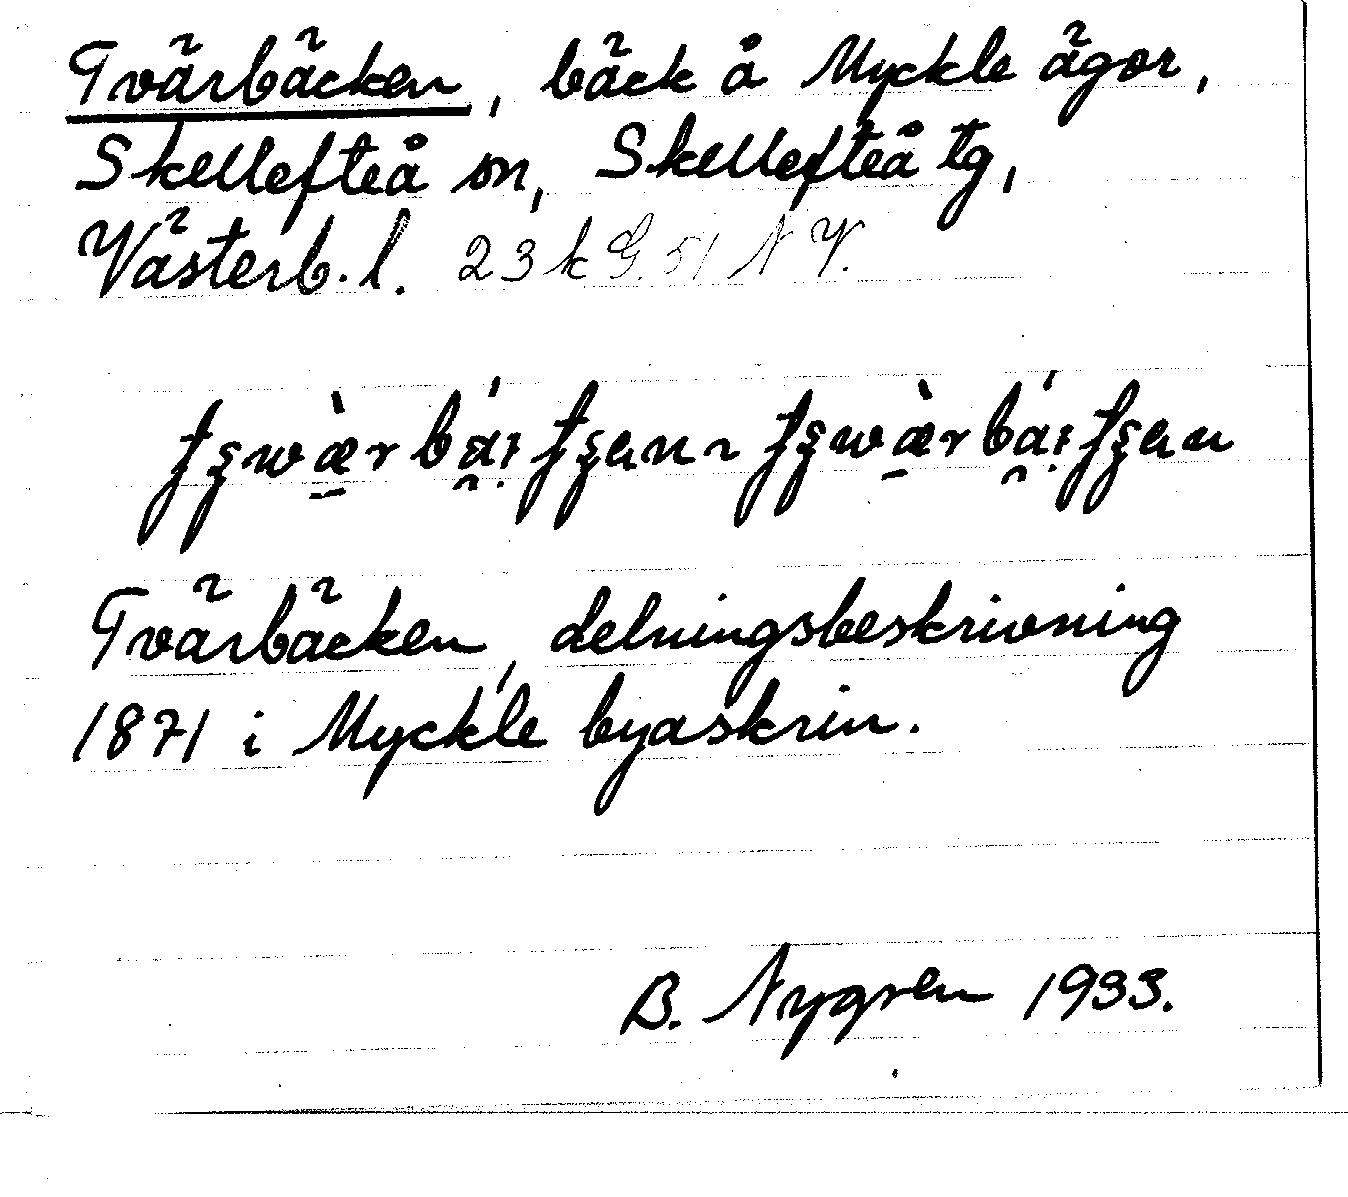 Tvärbäcken, bäck å Myckle ägor,
Skellefteå sn, Skellefteå tg,
Västerb. l. 23 k G. 51 N Y.
Tvärbäcken, delningsbeskrivning
1871 i Myckle byaskrin.
B. Nygren 1933.